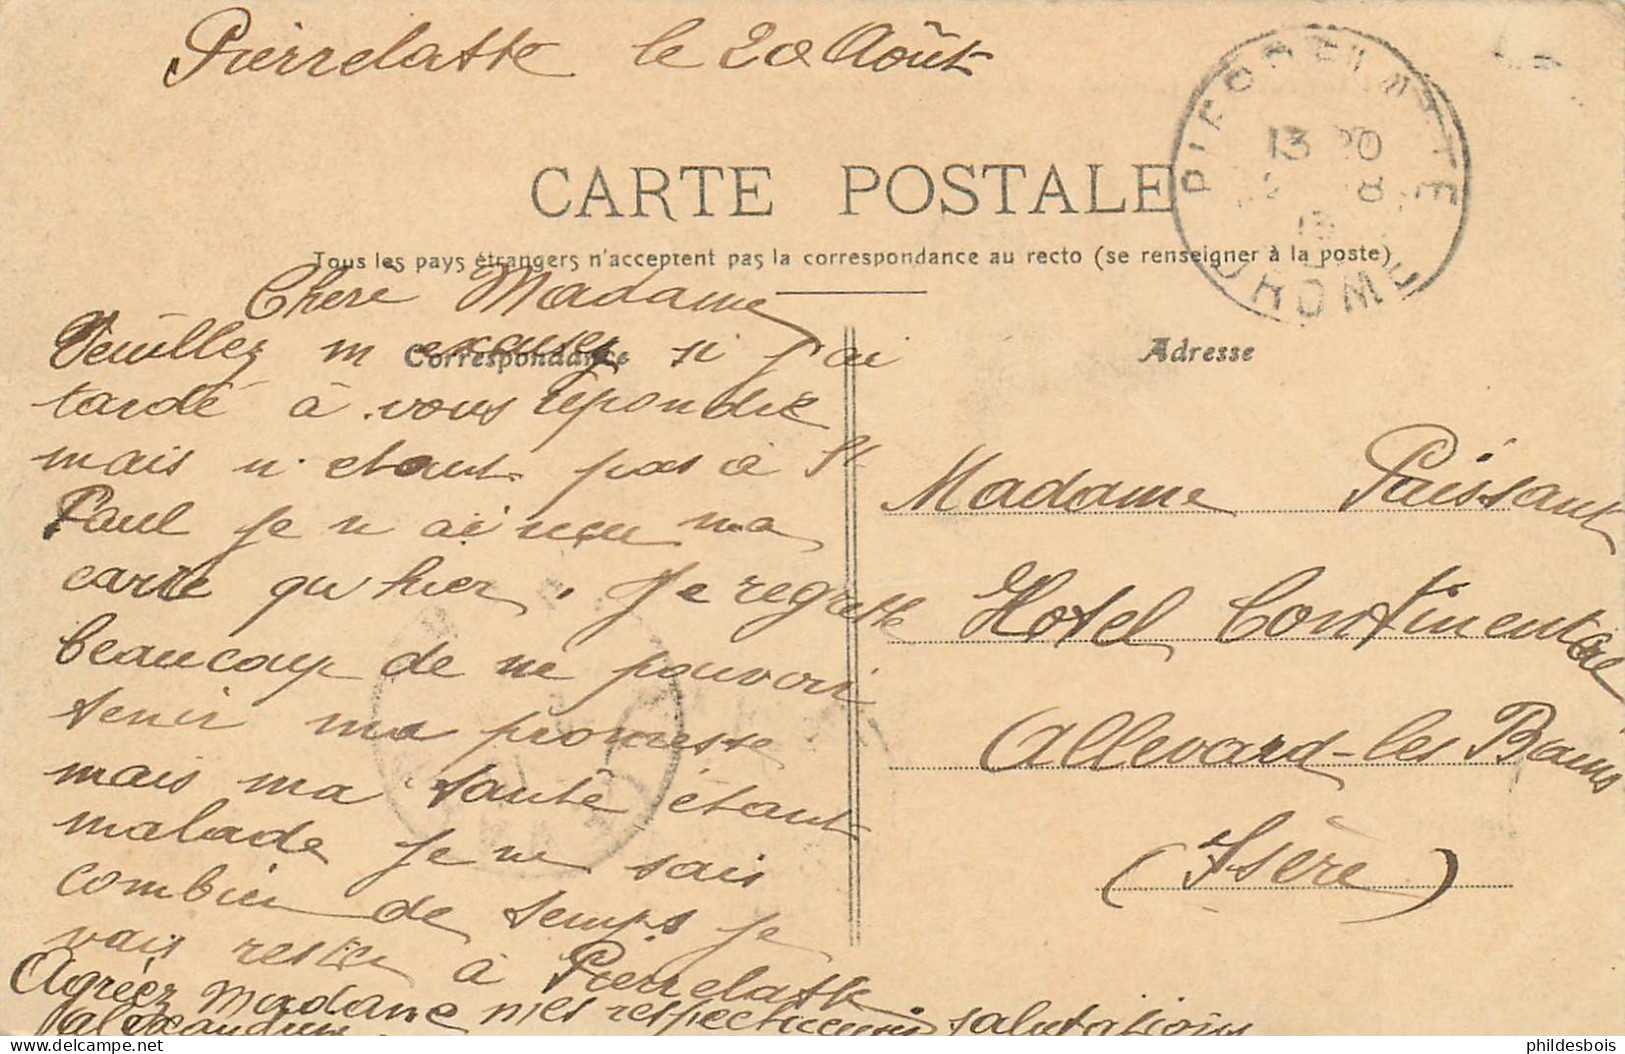 Pierrelatte le 20 Août
PIERRELATTE
13 20
8
13
DROME
CARTE POSTALE
Tous les pays étrangers n'acceptent pas la correspondance au recto (se renseigner à la poste)
Correspondance
Adresse
Chere Madame
Veuillez m excusez si j'ai
tardé à vous repondre
mais n'etant pas à St
Paul je n ai reçu ma
carte qu'hier. Je regrette
beaucoup de ne pouvoir
tenir ma promesse
mais ma santé étant
malade je ne sais
combien de temps je
vais rester à Pierrelatte
Agréez Madame mes respectueuses salutations
Madame Puissant
Hotel Continental
Allevard-les Bains
(Isère)
phildesbois